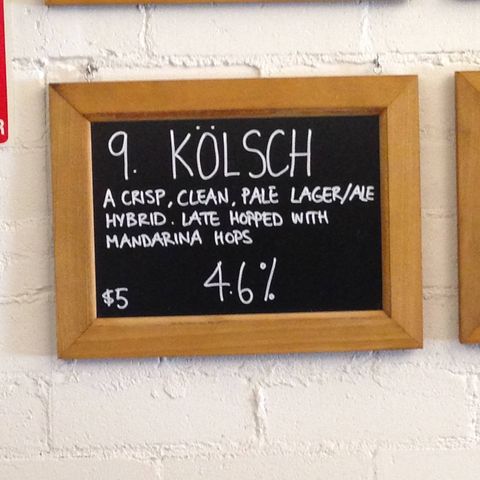 9. KÖLSCH
A CRISP, CLEAN, PALE LAGER/ALE
HYBRID. LATE HOPPED WITH
MANDARINA HOPS
$5 4.6%
R